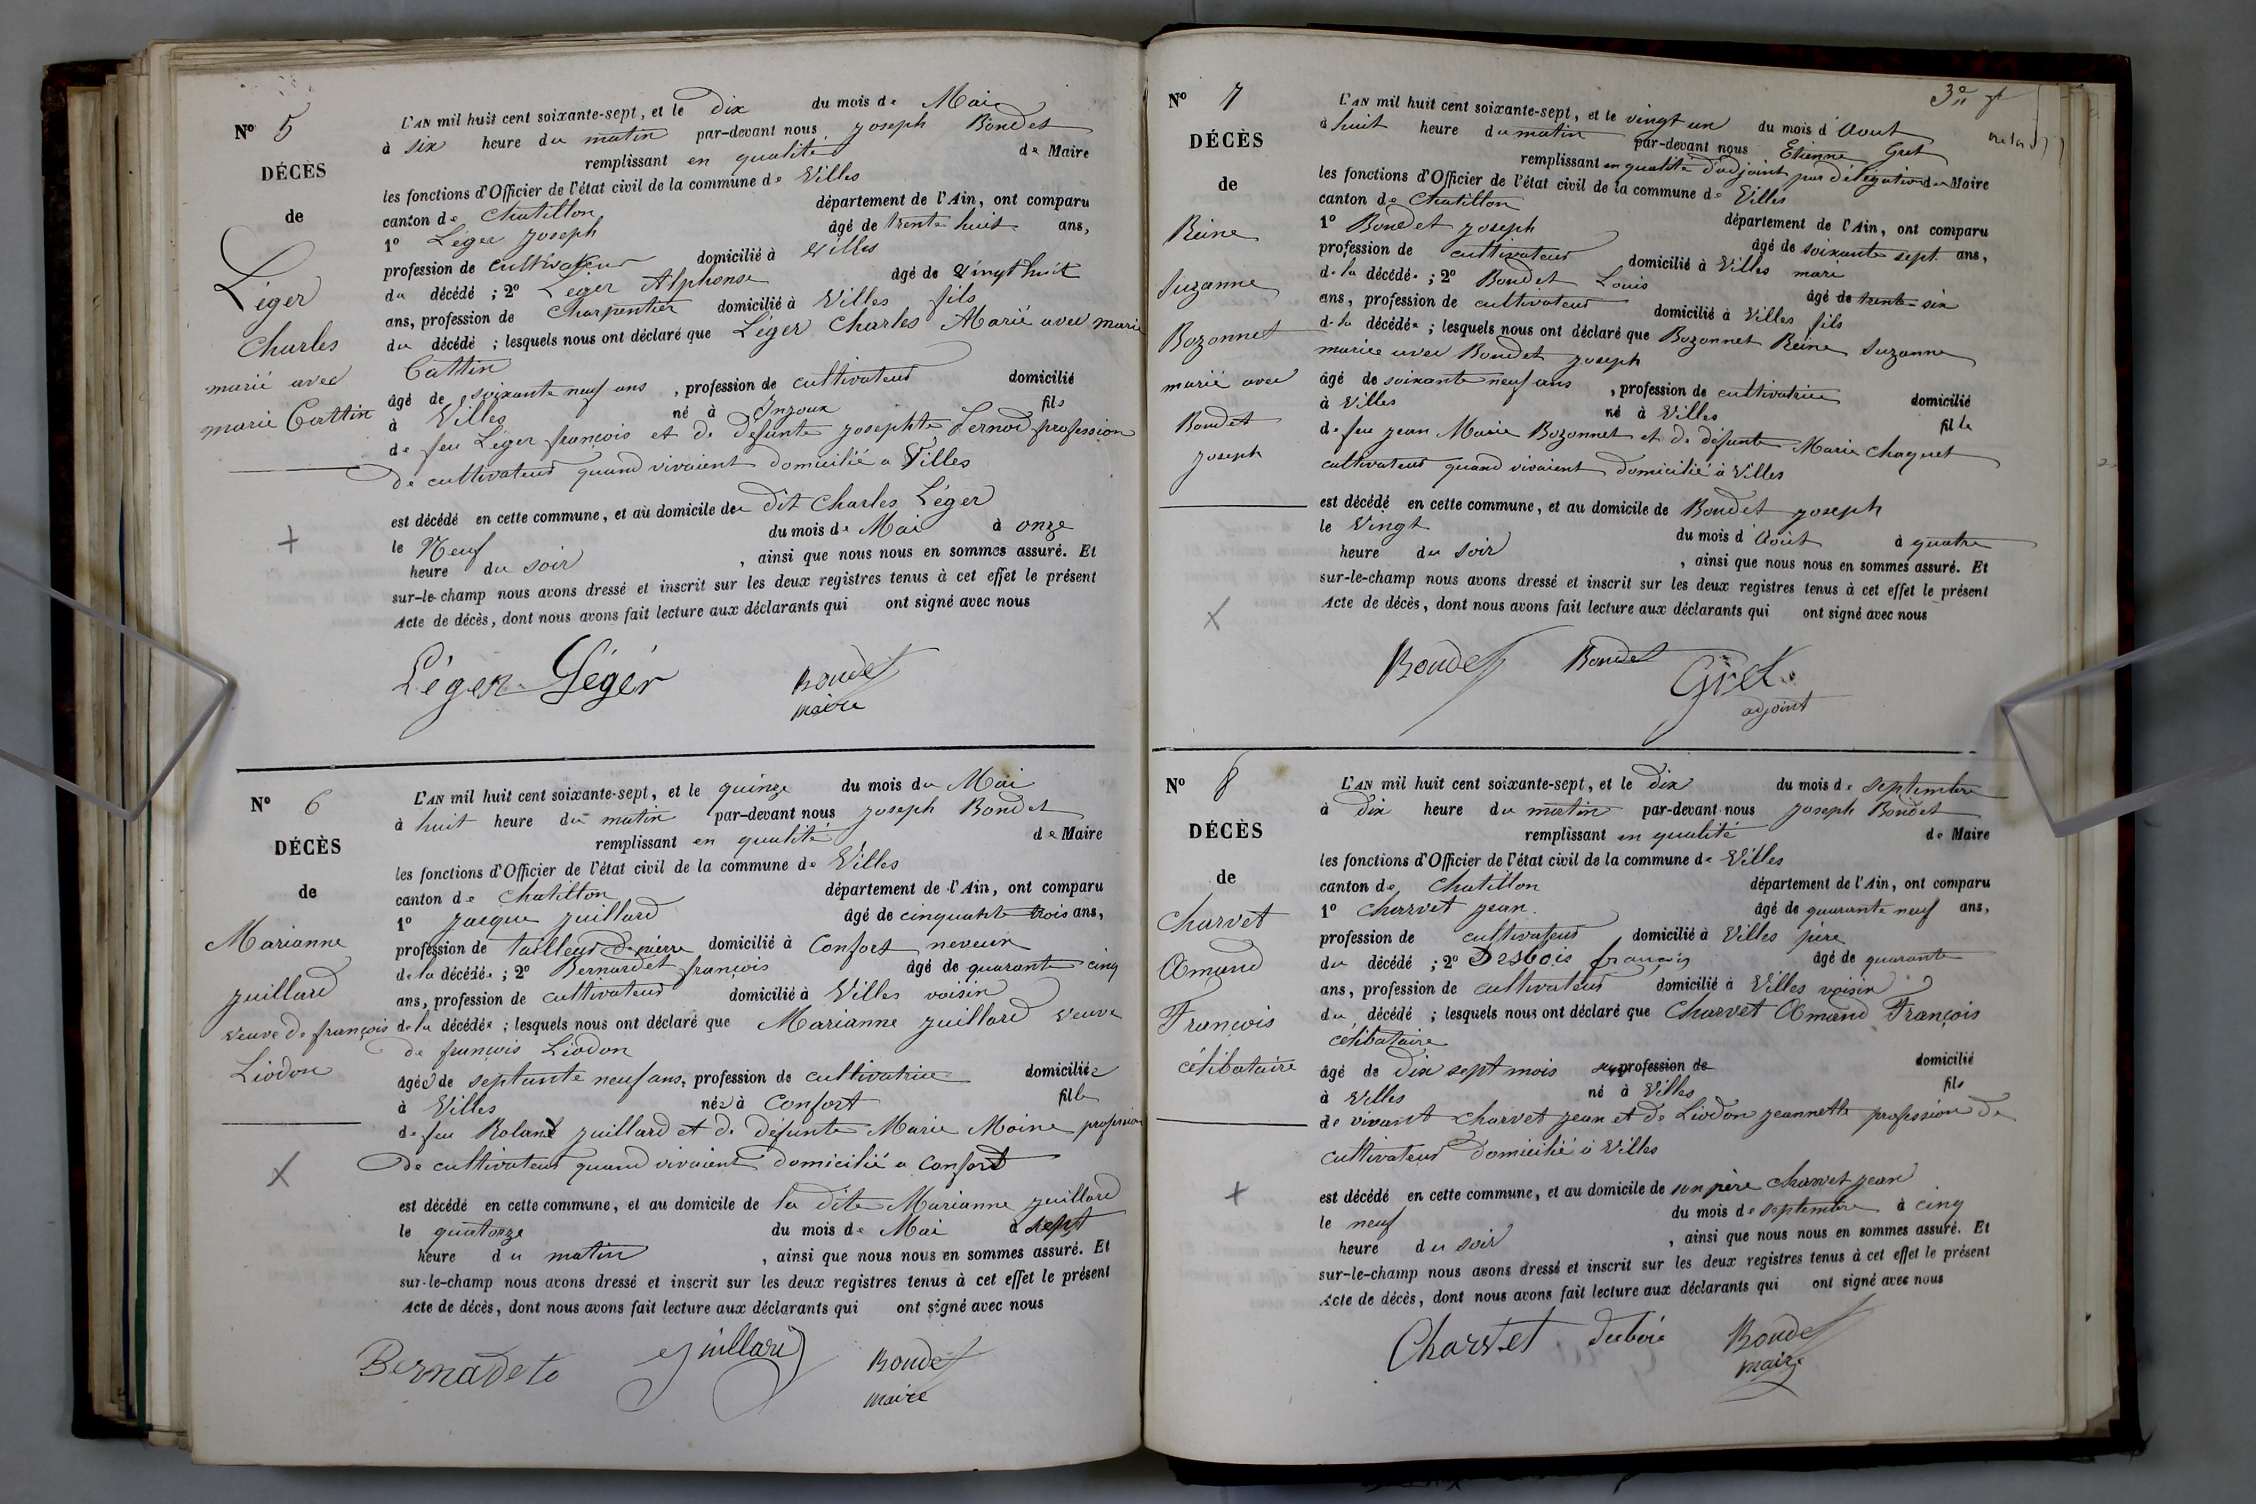 No 5
DÉCÈS
de
Léger
Charles
marié avec
marie Cattin
L'AN mil huit cent soixante-sept, et le dix du mois de Mai
à six heure du matin par-devant nous joseph Boudet
remplissant en qualité de Maire
les fonctions d'Officier de l'état civil de la commune de Villes
canton de Chatillon département de l'Ain, ont comparu
1º Léger joseph âgé de trente huit ans,
profession de cultivateur domicilié à Villes
du décédé ; 2º Léger Alphonse âgé de vingt huit
ans, profession de Charpentier domicilié à Villes fils
du décédé ; lesquels nous ont déclaré que Léger Charles Marié avec marie
Cattin
âgé de soixante neuf ans , profession de cultivateur domicilié
à Villes né à Injoux fils
de feu Léger françois et de défunte josephte Pernod profession
de cultivateur quand vivaient domicilié a Villes
est décédé en cette commune, et au domicile de dit Charles Léger
le Neuf du mois de Mai à onze
heure du soir , ainsi que nous nous en sommes assuré. Et
sur-le-champ nous avons dressé et inscrit sur les deux registres tenus à cet effet le présent
Acte de décès, dont nous avons fait lecture aux déclarants qui ont signé avec nous
Léger Légér Boudet
maire
No 6
DÉCÈS
de
Marianne
juillard
veuve de françois
Liodon
L'AN mil huit cent soixante-sept, et le quinze du mois du Mai
à huit heure du matin par-devant nous joseph Boudet
remplissant en qualité de Maire
les fonctions d'Officier de l'état civil de la commune de Villes
canton de Chatillon département de l'Ain, ont comparu
1º jacque juillard âgé de cinquante trois ans,
profession de tailleur de pierre domicilié à Confort neveux
de la décédée ; 2º Bernardet françois âgé de quarante cinq
ans, profession de cultivateur domicilié à Villes voisin
de la décédée ; lesquels nous ont déclaré que Marianne juillard veuve
de françois Liodon
âgée de septante neuf ans, profession de cultivatrice domiciliée
à Villes née à Confort fille
de feu Roland juillard et de défunte Marie Moine profession
de cultivateur quand vivaient domicilié a Confort
est décédé en cette commune, et au domicile de la dite Marianne juillard
le quatorze du mois de Mai à sept
heure du matin , ainsi que nous nous en sommes assuré. Et
sur-le-champ nous avons dressé et inscrit sur les deux registres tenus à cet effet le présent
Acte de décès, dont nous avons fait lecture aux déclarants qui ont signé avec nous
Bernadeto juillard Boudet
maire
No 7
DÉCÈS
de
Reine
Suzanne
Bozonnet
marié avec
Boudet
joseph
L'AN mil huit cent soixante-sept, et le vingt un du mois d'Aout
à huit heure du matin par-devant nous Etienne Gret
remplissant en qualité d'adjoint par délégation du Maire
les fonctions d'Officier de l'état civil de la commune de Villes
canton de Chatillon département de l'Ain, ont comparu
1º Boudet joseph âgé de soixante sept ans,
profession de cultivateur domicilié à Villes mari
de la décédée ; 2º Boudet Louis âgé de trente-six
ans, profession de cultivateur domicilié à Villes fils
de la décédée ; lesquels nous ont déclaré que Bozonnet Reine Suzanne
mariée avec Boudet joseph
âgé de soixante neuf ans , profession de cultivatrice domicilié
à Villes né à Villes fille
de feu jean Marie Bozonnet et de défunte Marie Chaquet
cultivateur quand vivaient domicilié à Villes
est décédé en cette commune, et au domicile de Boudet joseph
le Vingt du mois d'Août à quatre
heure du soir , ainsi que nous nous en sommes assuré. Et
sur-le-champ nous avons dressé et inscrit sur les deux registres tenus à cet effet le présent
Acte de décès, dont nous avons fait lecture aux déclarants qui ont signé avec nous
Boudet Boudet Gret
adjoint
No 8
DÉCÈS
de
Charvet
Amand
François
célibataire
L'AN mil huit cent soixante-sept, et le dix du mois de septembre
à dix heure du matin par-devant nous joseph Boudet
remplissant en qualité de Maire
les fonctions d'Officier de l'état civil de la commune de Villes
canton de Chatillon département de l'Ain, ont comparu
1º Charvet jean âgé de quarante neuf ans,
profession de cultivateur domicilié à Villes père
du décédé ; 2º Desbois françois âgé de quarante
ans, profession de cultivateur domicilié à Villes voisin
du décédé ; lesquels nous ont déclaré que Charvet Amand François
célibataire
âgé de dix sept mois profession de domicilié
à Villes né à Villes fils
de vivant Charvet jean et de Liodon jeannette profession de
cultivateur domicilié à Villes
est décédé en cette commune, et au domicile de son père charvet jean
le neuf du mois de septembre à cinq
heure du soir , ainsi que nous nous en sommes assuré. Et
sur-le-champ nous avons dressé et inscrit sur les deux registres tenus à cet effet le présent
Acte de décès, dont nous avons fait lecture aux déclarants qui ont signé avec nous
Charvet duboi Boudet
maire